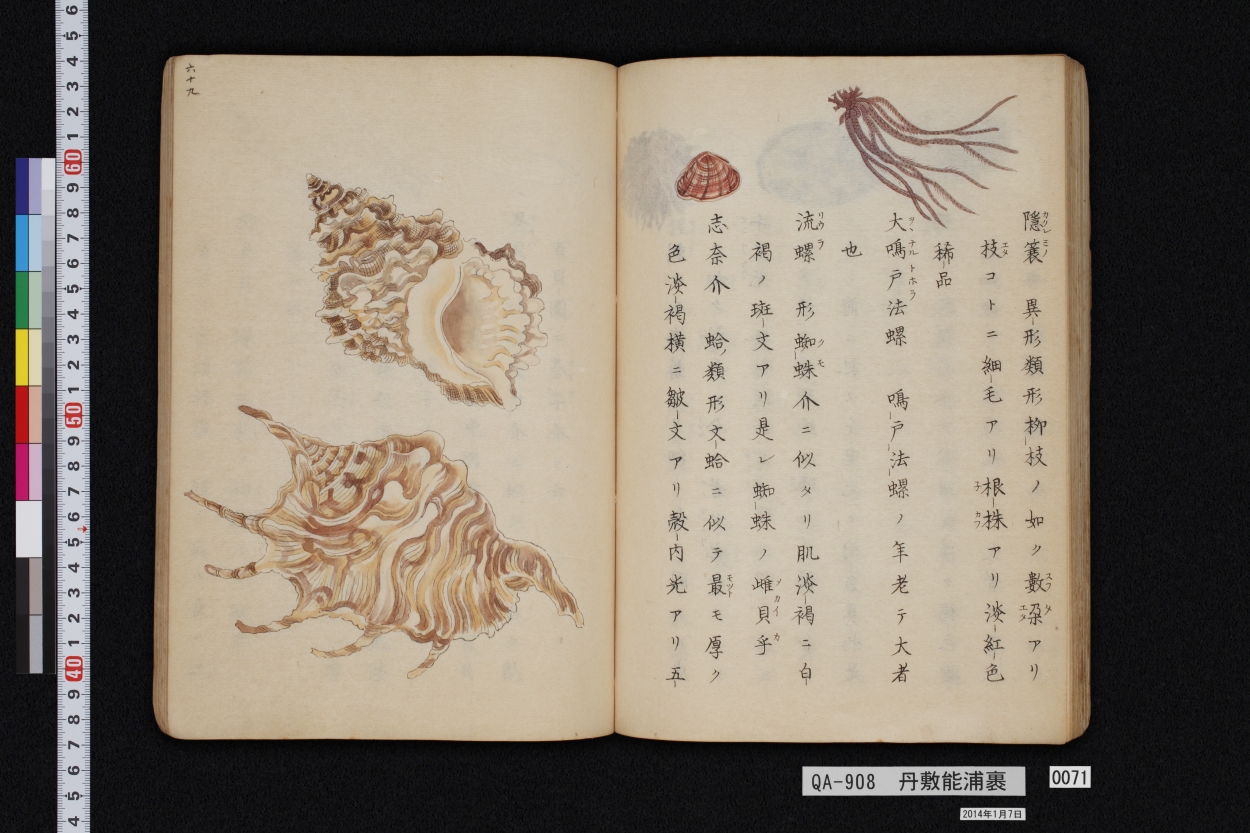 隠簑　異形類形柳枝ノ如ク數朶アリ
枝コトニ細毛アリ根株アリ淡紅色
稀品
大鳴戸法螺　鳴戸法螺ノ年老テ大者
也
流螺　形蜘蛛介ニ似タリ肌淡褐ニ白
褐ノ斑文アリ是レ蜘蛛ノ雌貝乎
志奈介　蛤ノ類形文蛤ニ似テ最モ厚ク
色淡褐横ニ皺文アリ殼内光アリ五
六十九
QA-908　丹敷能浦裹
0071
2014年1月7日